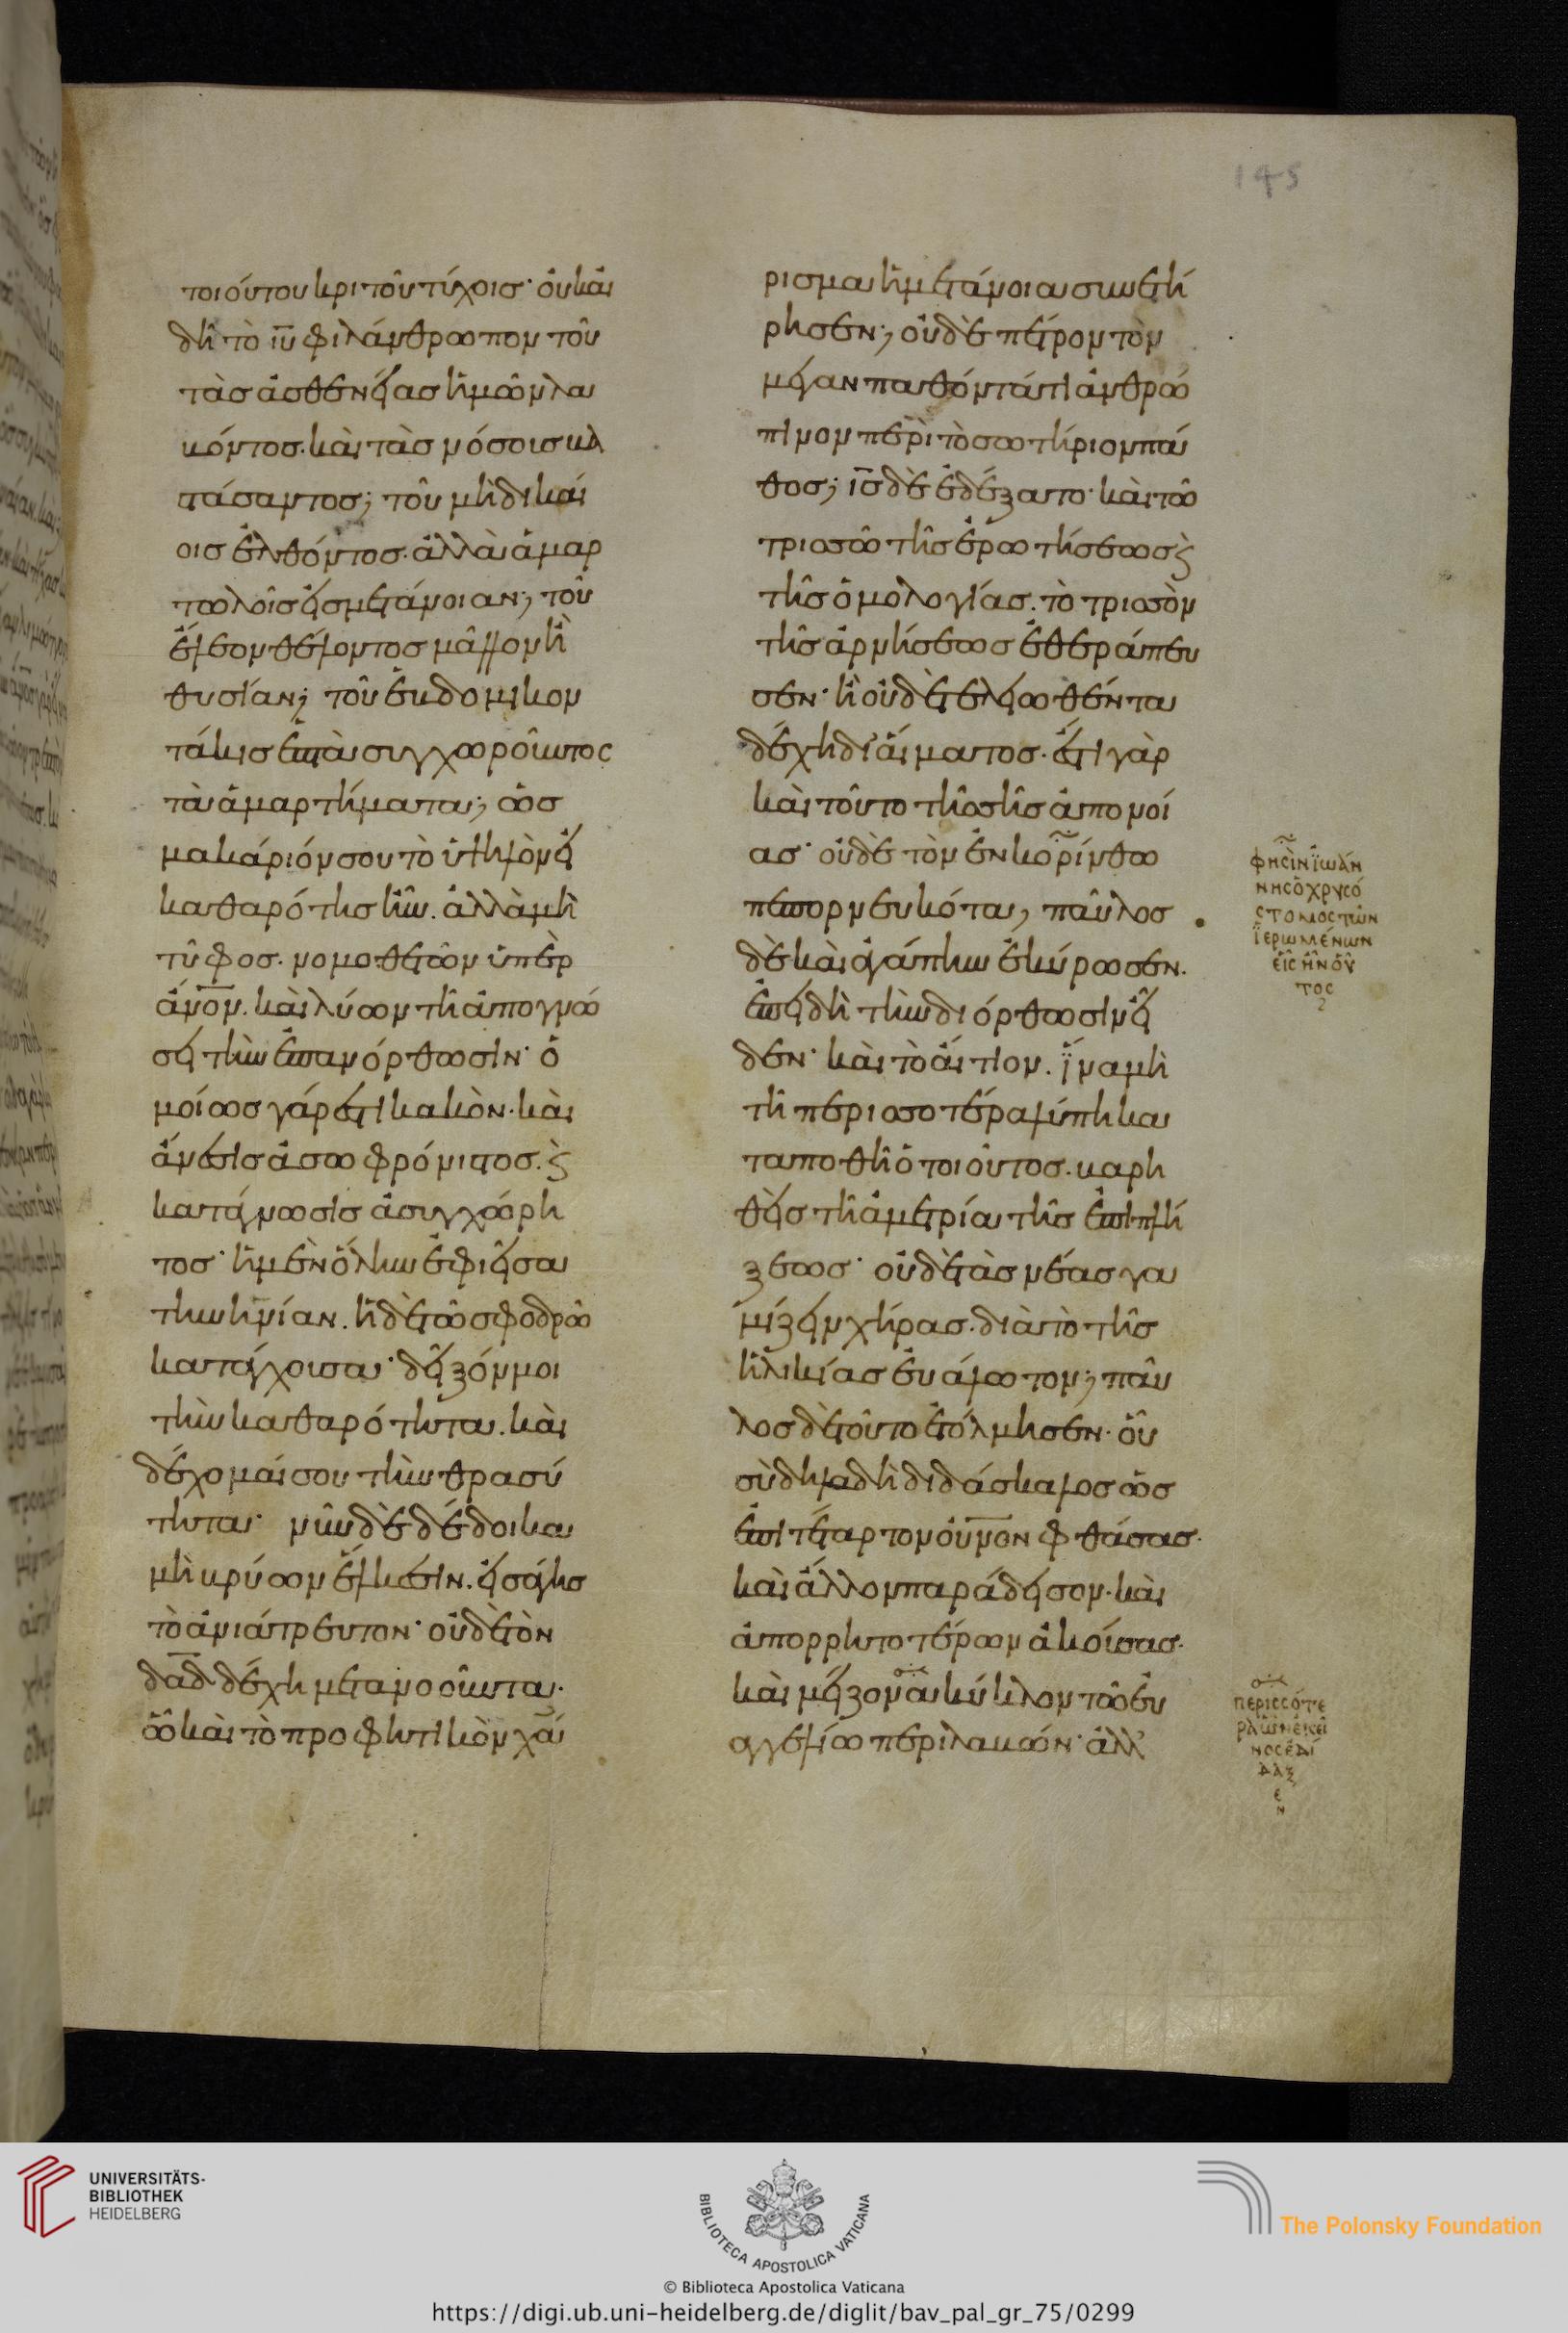 τοιούτου κριτοῦ τύχοις· οὐκ αἰ
δῆ τὸ ιῦ φιλάνθρωπον τοῦ
τὰς ἀσθενείας ἡμῶν λα
βόντος· καὶ τὰς νόσους βα
στάσαντος; τοῦ μὴ δικαί
οις ἐλθόντος· ἀλλὰ ἁμαρ
τωλοῖς εἰς μετάνοιαν; τοῦ
ἔλεον θέλοντος μᾶλλον ἢ
θυσίαν; τοῦ ἑβδομηκον
τάκις ἑπτὰ συγχωροῦντος
τὰ ἁμαρτήματα; ὡς
μακάριόν σου τὸ ὑψηλὸν εἰ
καθαρότης ἦν. ἀλλὰ μὴ
τῦφος. νομοθετῶν ὑπὲρ
ἄνον. καὶ λύων τῇ ἀπογνώ
σει τὴν ἐπανόρθωσιν· ὁ
μοίως γάρ ἐστι κακὸν· καὶ
ἄνεσις ἀσωφρόνιστος. ϗ
κατάγνωσις ἀσυγχώρη
τος· ἡ μὲν ὅλην ἐφιεῖσα
τὴν ἡνίαν. ἡ δὲ τῷ σφοδρῷ
κατάγχουσα· δεῖξόν μοι
τὴν καθαρότητα. καὶ
δέχομαί σου τὴν θρασύ
τητα· νῦν δὲ δέδοικα
μὴ βρύων ἕλκεσιν. εἰσάγης
τὸ ἀνιάτρευτον· οὐδὲ τὸν
δαδ δέχη μετανοοῦντα·
ᾧ καὶ τὸ προφητικὸν χά
145
ρισμα ἡ μετάνοια συνετή
ρησεν; οὐδὲ πέτρον τὸν
μέγαν παθόντά τι ἀνθρώ
πινον περὶ τὸ σωτήριον πά
θος; ις δὲ ἐδέξατο· καὶ τῷ
τρισσῷ τῆς ἐρωτήσεως ϗ
τῆς ὁμολογίας. τὸ τρισσὸν
τῆς ἀρνήσεως ἐθεράπευ
σεν· ἢ οὐδὲ τελειωθέντα
δέχη δι' αἵματος· ἔστι γὰρ
καὶ τοῦτο τῆς σῆς ἀπονοί
ας· οὐδὲ τὸν ἐν κορίνθω
πεπορνευκότα; παῦλος
δὲ καὶ ἀγάπην ἐκύρωσεν.
ἐπειδὴ τὴν διόρθωσιν εἶ
δεν· καὶ τὸ αἴτιον. ἵνα μὴ
τῇ περισσοτέρα λύπη κα
ταποθῆ ὁ τοιοῦτος. βαρη
θεὶς τῇ ἀμετρία τῆς ἐπιπλή
ξεως· οὐδὲ τὰς νέας γα
μίζειν χήρας· διὰ τὸ τῆς
ἡλικίας εὐάλωτον; παῦ
λος δὲ τοῦτο ἐτόλμησεν· οὗ
σὺ δηλαδὴ διδάσκαλος ὡς
ἐπὶ τέταρτον οὐνον φθάσας·
καὶ ἄλλον παράδεισον· καὶ
ἀπορρητοτέρων ἀκούσας·
καὶ μείζονα κύκλον τῷ εὐ
αγγελίω περιλαβών· ἀλλ'
φησὶν ἰωάν
νης ὁ χρυσό
στομος τῶν
ἱερωμένων
εἷς ἦν οὗ
τος
περισσότε
ρα ὧν ἐκεῖ
νος ἐδί
δαξ
ε
ν
UNIVERSITÄTS-
BIBLIOTHEK
HEIDELBERG
BIBLIOTECA APOSTOLICA VATICANA
The Polonsky Foundation
© Biblioteca Apostolica Vaticana
https://digi.ub.uni-heidelberg.de/diglit/bav_pal_gr_75/0299